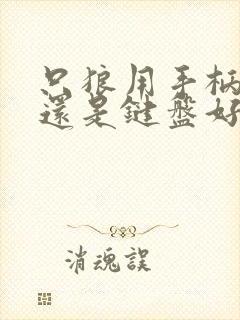 只狼用手柄
還是鍵盤好
消魂誤